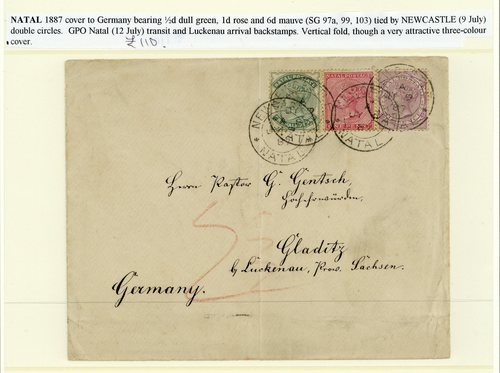 NATAL 1887 cover to Germany bearing ½d dull green, 1d rose and 6d mauve (SG 97a, 99, 103) tied by NEWCASTLE (9 July)
double circles. GPO Natal (12 July) transit and Luckenau arrival backstamps. Vertical fold, though a very attractive three-colour
cover.
110.
NATAL POSTAGE
NATAL
NATAL
Herrn Pastor G. Gentsch,
Hochehrwürden.
Gladitz
b/ Luckenau, Prov. Sachsen.
Germany.